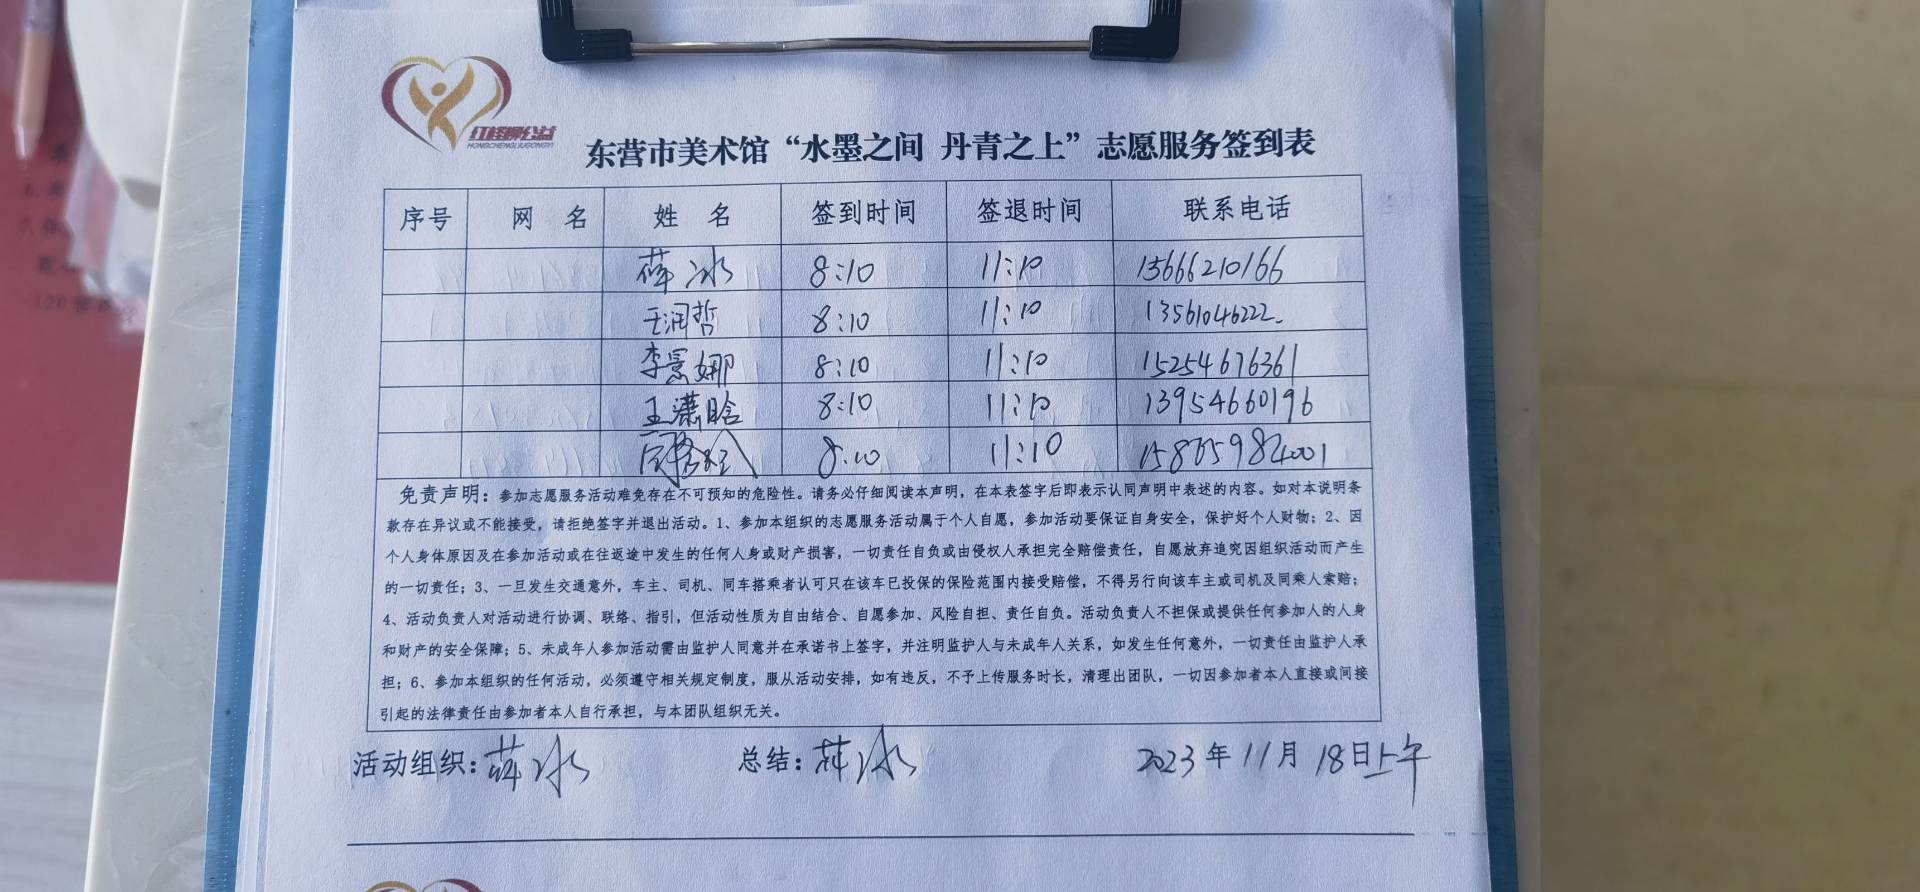 红柽柳公益
HONGCHENGLIUGONGYI
东营市美术馆“水墨之间 丹青之上”志愿服务签到表
序号 网 名 姓 名 签到时间 签退时间 联系电话
薛冰 8:10 11:10 15666210166
王润哲 8:10 11:10 13561046222
李景娜 8:10 11:10 15254676361
王潇晗 8:10 11:10 13954660196
8:10 11:10
免责声明：参加志愿服务活动难免存在不可预知的危险性。请务必仔细阅读本声明，在本表签字后即表示认同声明中表述的内容。如对本说明条
款存在异议或不能接受，请拒绝签字并退出活动。1、参加本组织的志愿服务活动属于个人自愿，参加活动要保证自身安全，保护好个人财物；2、因
个人身体原因及在参加活动或在往返途中发生的任何人身或财产损害，一切责任自负或由侵权人承担完全赔偿责任，自愿放弃追究因组织活动而产生
的一切责任；3、一旦发生交通意外，车主、司机、同车搭乘者认可只在该车已投保的保险范围内接受赔偿，不得另行向该车主或司机及同乘人索赔；
4、活动负责人对活动进行协调、联络、指引，但活动性质为自由结合、自愿参加、风险自担、责任自负。活动负责人不担保或提供任何参加人的人身
和财产的安全保障；5、未成年人参加活动需由监护人同意并在承诺书上签字，并注明监护人与未成年人关系，如发生任何意外，一切责任由监护人承
担；6、参加本组织的任何活动，必须遵守相关规定制度，服从活动安排，如有违反，不予上传服务时长，清理出团队，一切因参加者本人直接或间接
引起的法律责任由参加者本人自行承担，与本团队组织无关。
活动组织：薛冰 总结：薛冰 2023年11月18日上午